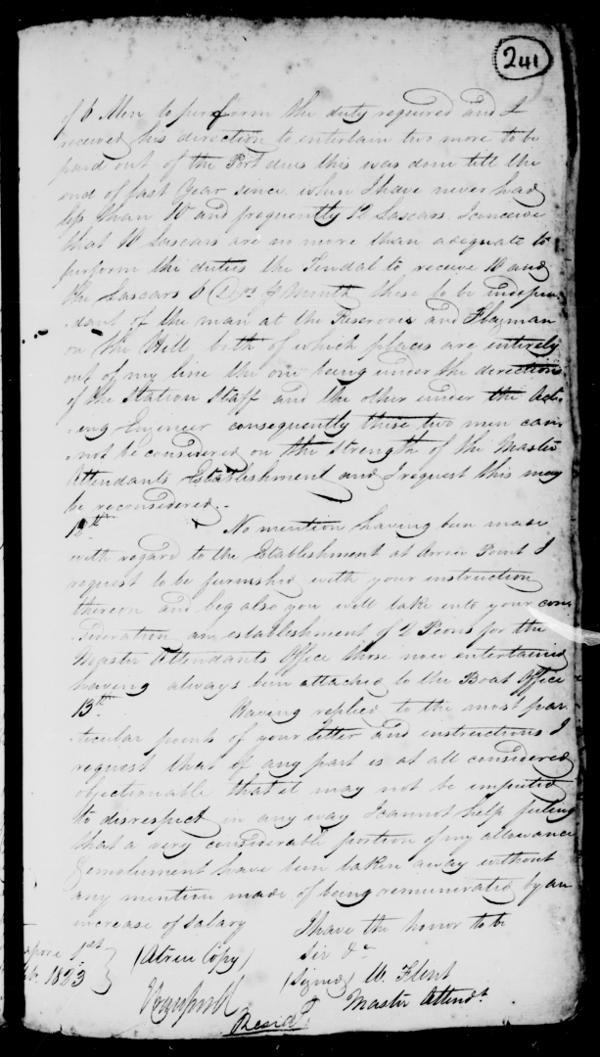 241
of 6 Men to perform the duty required and I
received his direction to entertain two more to be
paid out of the Port dues this was done till the
end of last Year since when I have never had
less than 10 and frequently 12 Lascars. I conceive
that 10 Lascars are no more than adequate to
perform the duties the Tindal to receive 10 and
the Lascars 6 Month these to be indepen
dant of the man at the Reservoir and Flagman
on the Hill both of which places are entirely
out of my line the one being under the direction
of the Station Staff and the other under the Act
ing Engineer consequently those two men can
not be considered on the strength of the Master
Attendants Establishment and I request this may
be reconsidered.
12th. No mention having been made
with regard to the Establishment at Point I
request to be furnished with your instruction
thereon and beg also you will take into your con
sideration an establishment of 2 Peons for the
Master Attendants Office those now entertained
having always been attached to the Boat Office
13th. Having replied to the most par
ticular points of your letter and instructions I
request that if any part is at all considered
objectionable that it may not be imputed
to disrespect in any way I cannot help feeling
that a very considerable portion of my allowance
& emolument have been taken away without
any mention made of being remunerated by an
increase of salary I have the honor to be
apore 1st } (A true Copy) Sir &c
1823 (Signed) W. Flint
Master Attendt.
Resid